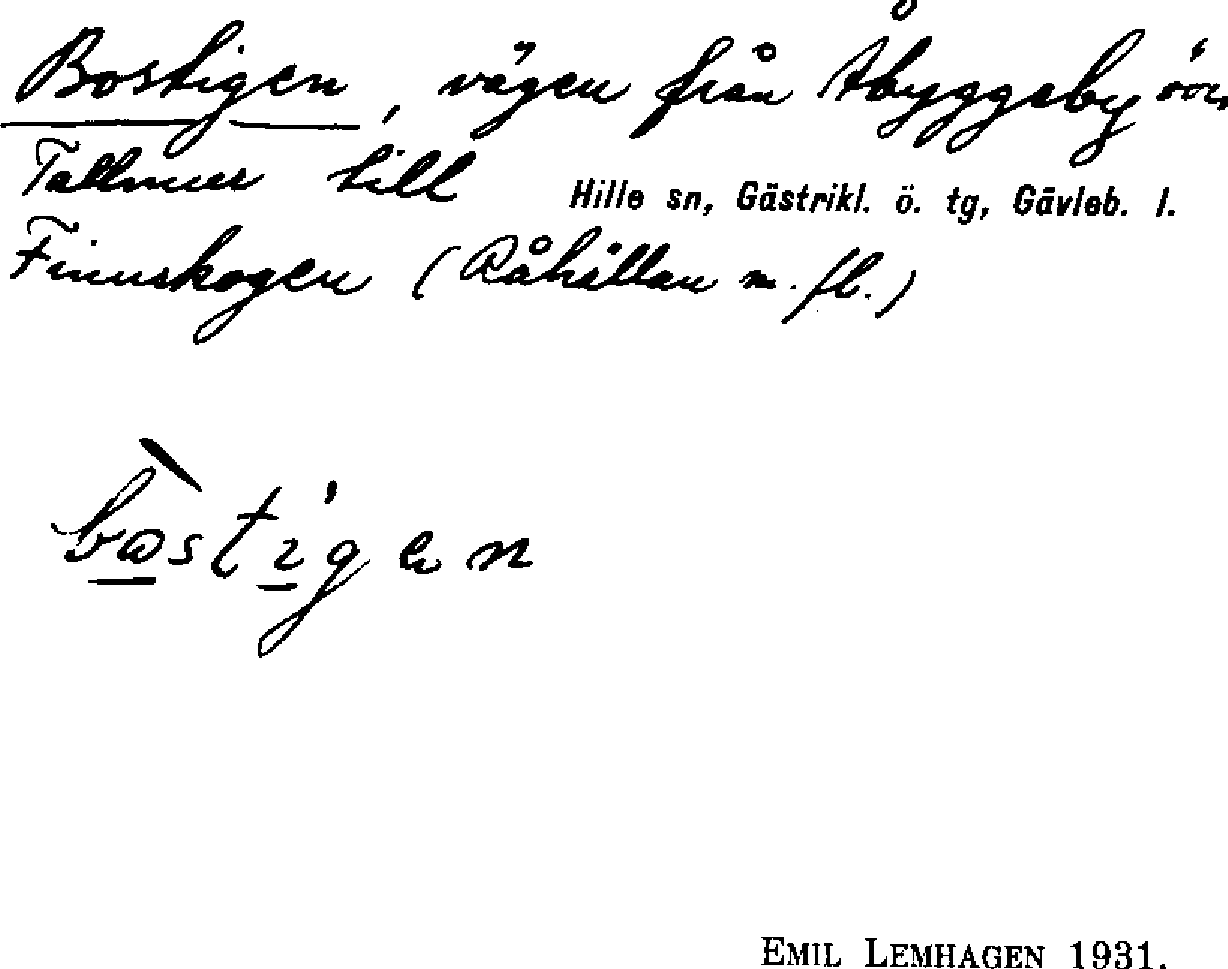 Bostigen, vägen från Åbyggeby över
Tallmur till
Hille sn, Gästrikl. ö. tg, Gävleb. l.
Finnskogen (Råhällan m. fl.)
EMIL LEMHAGEN 1931.